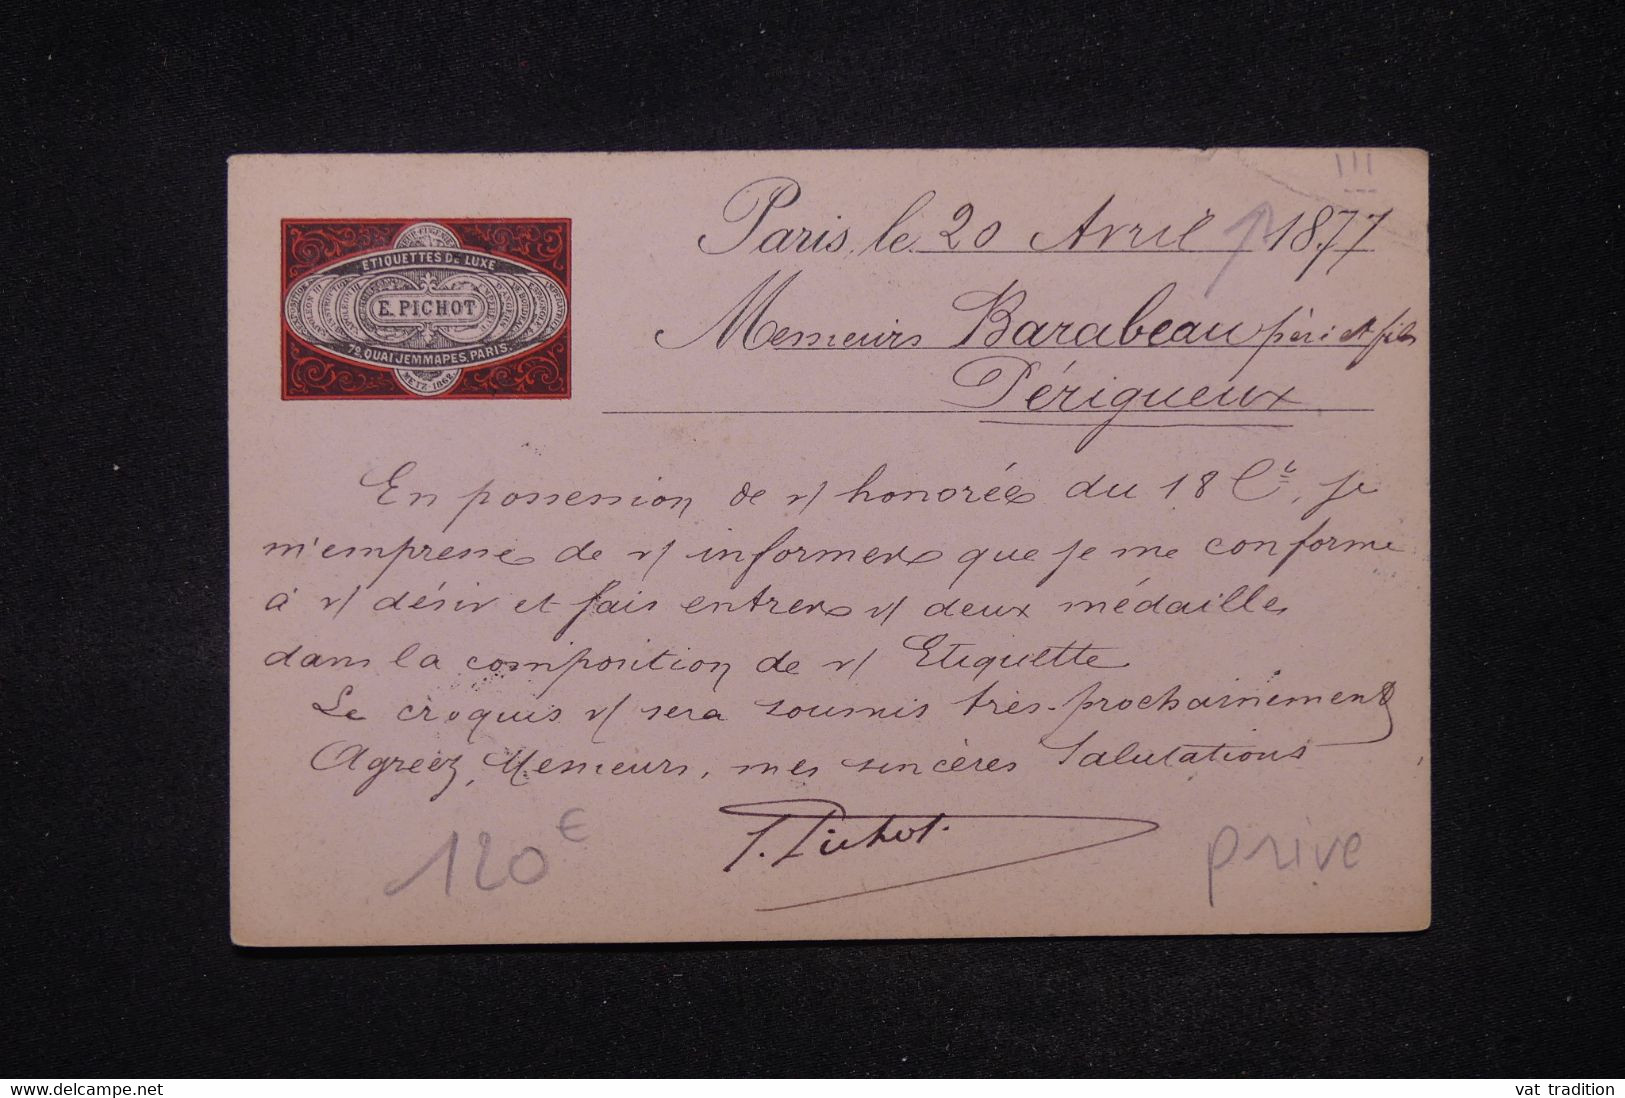 Paris, le 20 Avril 1877
Messieurs Barabeau père et fils
Périgueux
ETIQUETTES DE LUXE
E. PICHOT
72. QUAI JEMMAPES, PARIS.
METZ-1868
En possession de v/ honorée du 18 Ct, je
m'empresse de v/ informer que je me conforme
à v/ désir et fais entrer v/ deux médailles
dans la composition de v/ Etiquette
Le croquis v/ sera soumis très-prochainement
Agréez, Messieurs, mes sincères Salutations
Pichot
120€
prive
www.delcampe.net
vat tradition